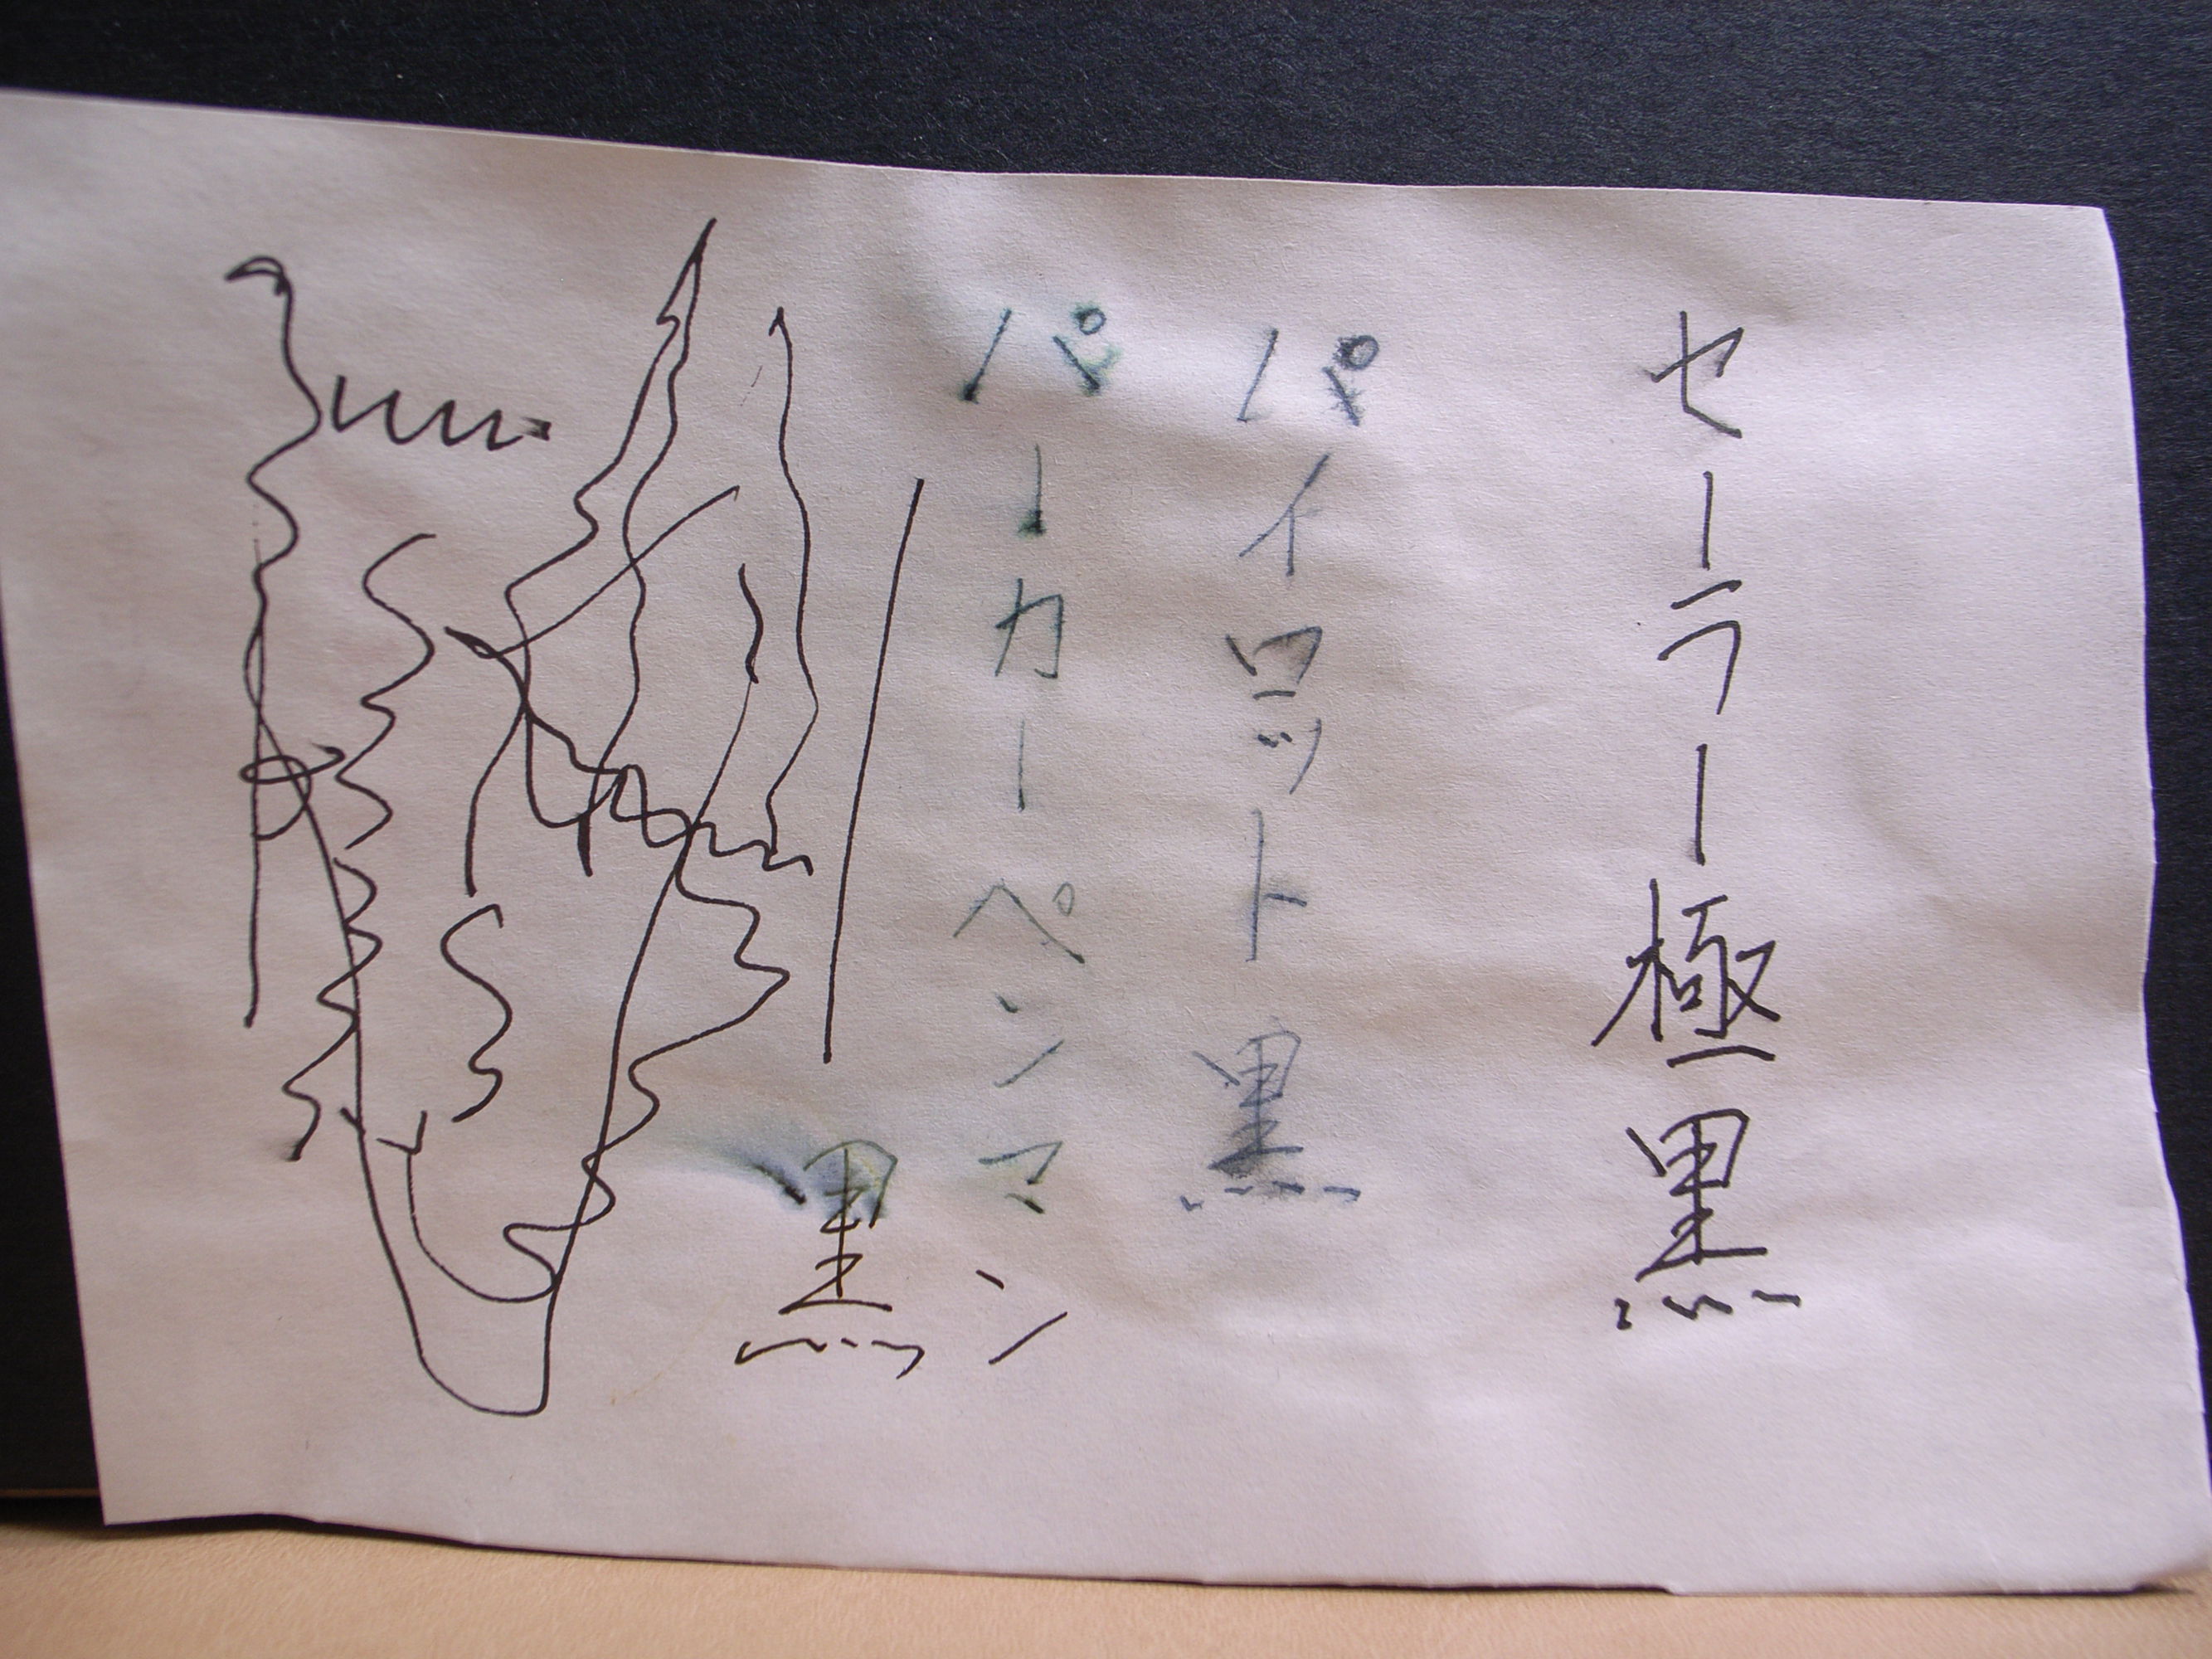 セーラー極黒
パイロット黒
パーカーペンマン
黒